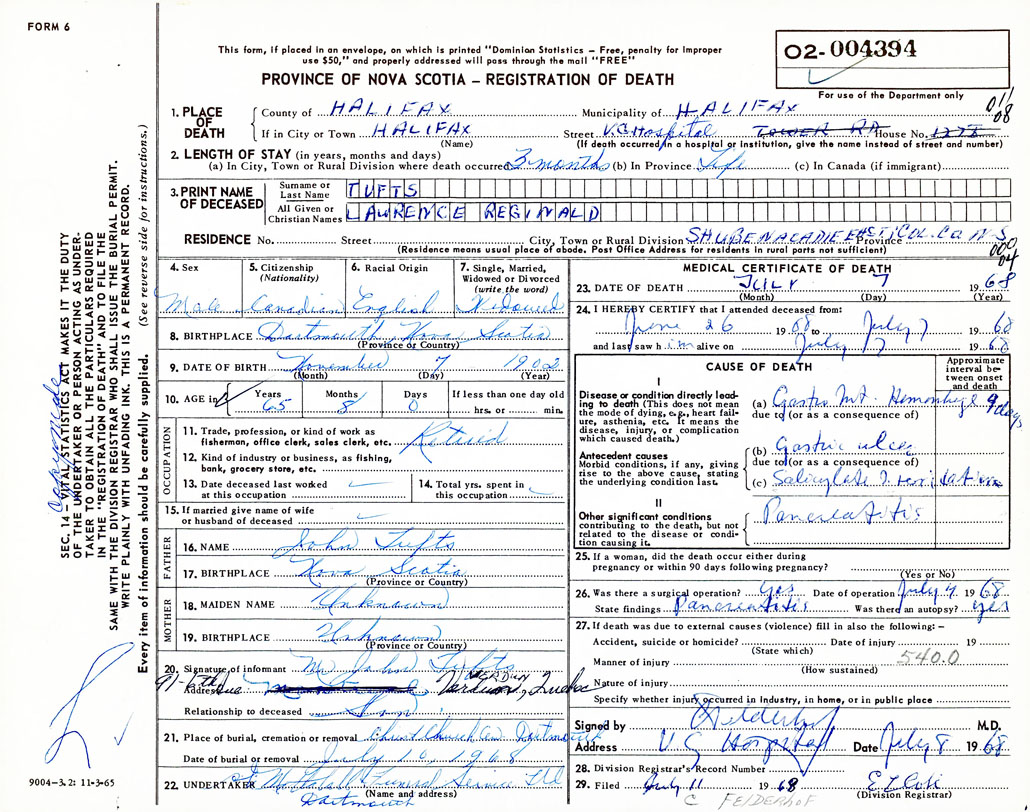 FORM 6
This form, if placed in an envelope, on which is printed "Dominion Statistics – Free, penalty for improper
use $50," and properly addressed will pass through the mail "FREE"
PROVINCE OF NOVA SCOTIA – REGISTRATION OF DEATH
02-004394
For use of the Department only
011
08
1. PLACE OF DEATH
County of HALIFAX Municipality of HALIFAX
If in City or Town HALIFAX Street V.G. Hospital TOWER RD House No. 1278
(Name) (If death occurred in a hospital or institution, give the name instead of street and number)
2. LENGTH OF STAY (in years, months and days)
(a) In City, Town or Rural Division where death occurred 3 months (b) In Province Life (c) In Canada (if immigrant)
3. PRINT NAME OF DECEASED
Surname or Last Name TUFTS
All Given or Christian Names LAWRENCE REGINALD
RESIDENCE No. Street City, Town or Rural Division SHUBENACADIE EAST COL. Co Province N-S
(Residence means usual place of abode. Post Office Address for residents in rural parts not sufficient)
000
04
4. Sex 5. Citizenship (Nationality) 6. Racial Origin 7. Single, Married, Widowed or Divorced (write the word)
Male Canadian English Widowed
8. BIRTHPLACE Dartmouth, Nova Scotia
(Province or Country)
9. DATE OF BIRTH November 7 1902
(Month) (Day) (Year)
10. AGE in Years Months Days If less than one day old
65 8 0 hrs. or min.
OCCUPATION
11. Trade, profession, or kind of work as
fisherman, office clerk, sales clerk, etc. Retired
12. Kind of industry or business, as fishing,
bank, grocery store, etc.
13. Date deceased last worked
at this occupation
14. Total yrs. spent in
this occupation
15. If married give name of wife
or husband of deceased
FATHER
16. NAME John Tufts
17. BIRTHPLACE Nova Scotia
(Province or Country)
MOTHER
18. MAIDEN NAME Unknown
19. BIRTHPLACE Unknown
(Province or Country)
20. Signature of informant Mr John Tufts
Address 91-6th Ave VERDUN Verdun, Quebec
Relationship to deceased Son
21. Place of burial, cremation or removal Christ Church Cem Dartmouth
Date of burial or removal July 10, 1968
22. UNDERTAKER Funeral Service Ltd
(Name and address)
Dartmouth
MEDICAL CERTIFICATE OF DEATH
23. DATE OF DEATH JULY 7 1968
(Month) (Day) (Year)
24. I HEREBY CERTIFY that I attended deceased from:
June 26 1968 to July 7 1968
and last saw him alive on July 7 1968
CAUSE OF DEATH
Approximate interval between onset and death
I
Disease or condition directly leading to death (This does not mean the mode of dying, e.g., heart failure, asthenia, etc. It means the disease, injury, or complication which caused death.)
(a) Gastro Int. Hemorrhage 9 days
due to (or as a consequence of)
Antecedent causes
Morbid conditions, if any, giving rise to the above cause, stating the underlying condition last.
(b) Gastric ulcer
due to (or as a consequence of)
(c) Salicylate
II
Other significant conditions contributing to the death, but not related to the disease or condition causing it.
Pancreatitis
25. If a woman, did the death occur either during
pregnancy or within 90 days following pregnancy?
(Yes or No)
26. Was there a surgical operation? yes Date of operation July 4 1968
State findings Pancreatitis Was there an autopsy? yes
27. If death was due to external causes (violence) fill in also the following: –
Accident, suicide or homicide? Date of injury 19
(State which)
540.0
Manner of injury
(How sustained)
Nature of injury
Specify whether injury occurred in industry, in home, or in public place
Signed by C Felderhof M.D.
Address V G Hospital Date July 8 1968
28. Division Registrar's Record Number
29. Filed July 11 1968
(Division Registrar)
C FELDERHOF
SEC. 14 – VITAL STATISTICS ACT MAKES IT THE DUTY
OF THE UNDERTAKER OR PERSON ACTING AS UNDER-
TAKER TO OBTAIN ALL THE PARTICULARS REQUIRED
IN THE "REGISTRATION OF DEATH" AND TO FILE THE
SAME WITH THE DIVISION REGISTRAR WHO SHALL ISSUE THE BURIAL PERMIT.
WRITE PLAINLY WITH UNFADING INK. THIS IS A PERMANENT RECORD.
Every item of information should be carefully supplied. (See reverse side for instructions.)
9004-3.2: 11-3-65